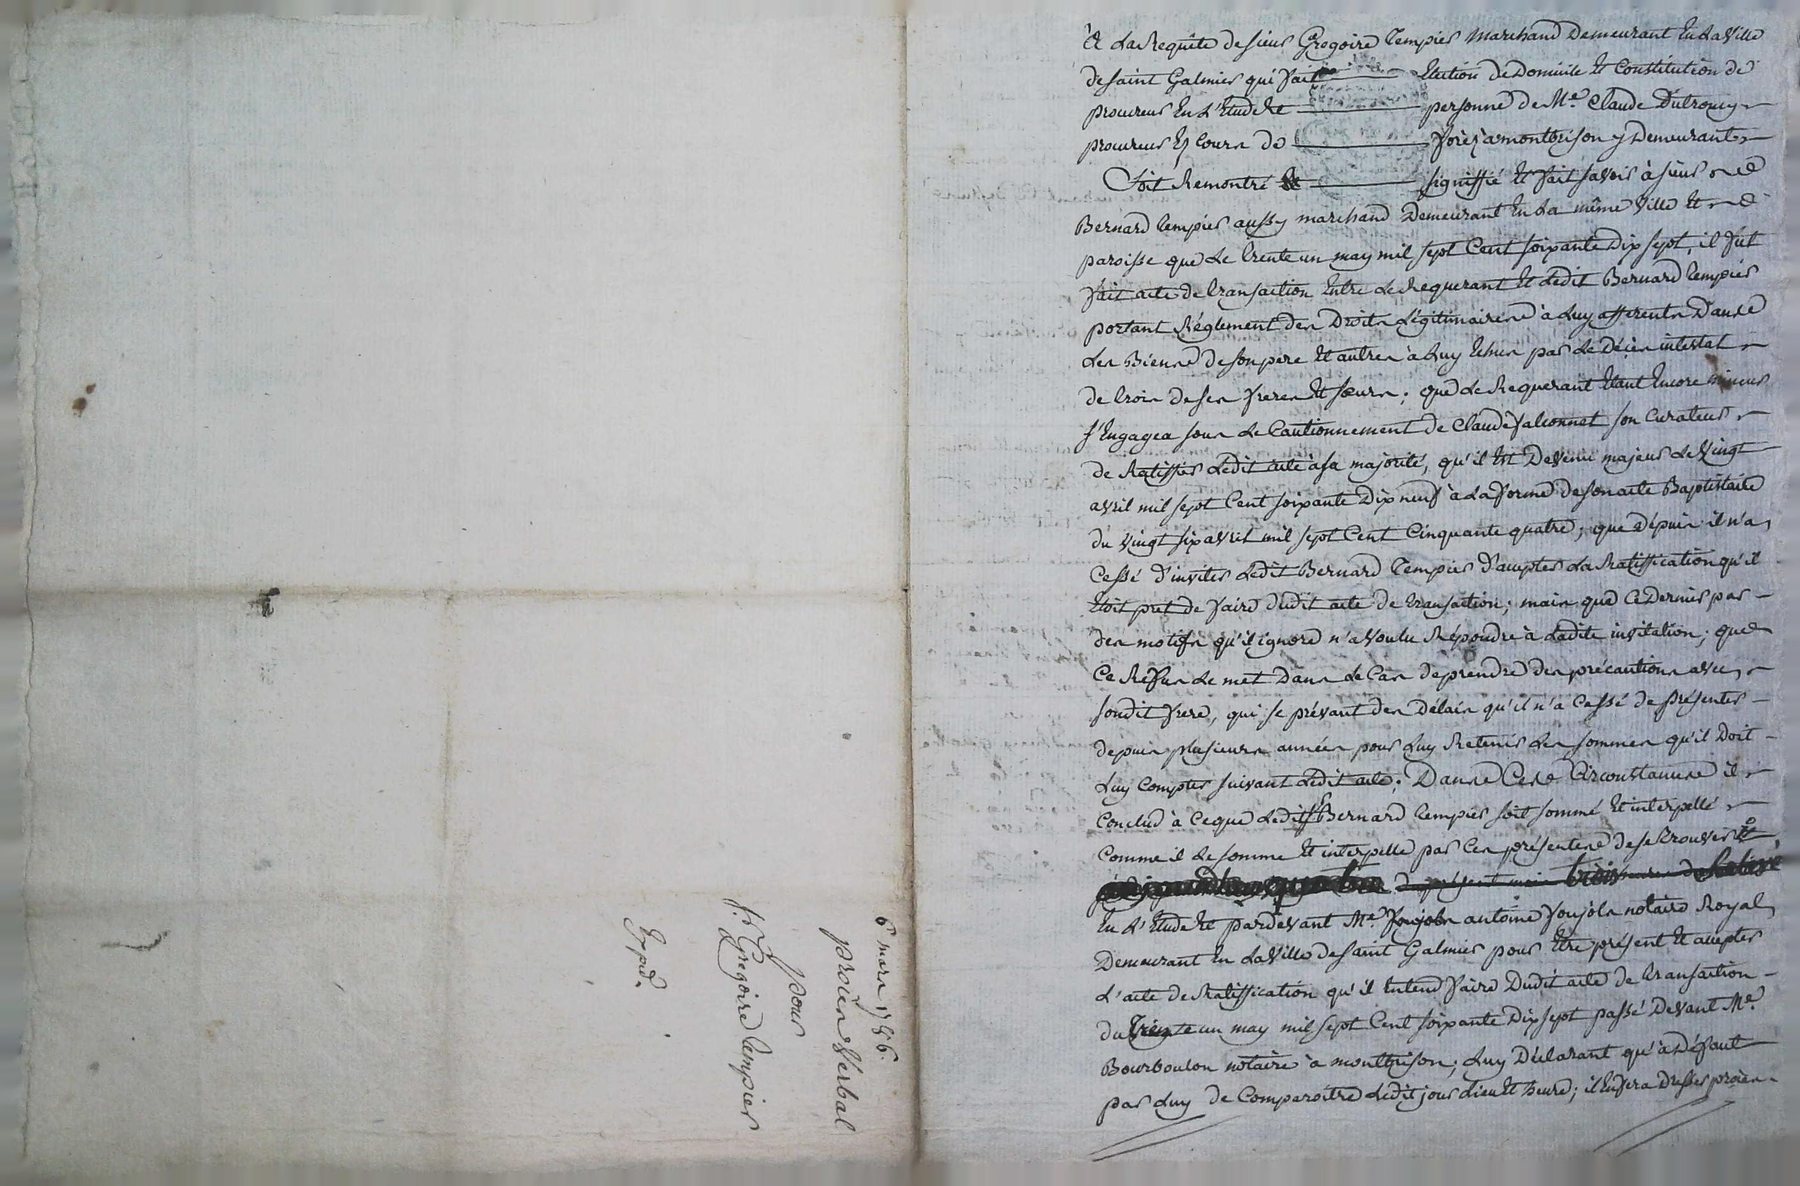 6 mars 1786.
procès Verbal
pour
sr. Gregoire Tempier
Exped.
A La Requête de sieur Gregoire Tempier Marchand Demeurant En La Ville
de saint Galmier qui fait Election de Domicile Et Constitution de
procureur En L'Etude Et personne de Me. Claude Dutroncy
procureur Es Cours de forèz à montbrison y Demeurant
Soit Remontré signiffié Et fait savoir à sieur
Bernard Tempier aussy marchand Demeurant En La même Ville Et
paroisse que Le trente un may mil sept Cent soixante Dix sept, il fut
fait acte de transaction Entre Le Requerant Et Ledit Bernard Tempier
portant Réglement des Droits Légitimaires à Luy afferents Dans
Les Biens de son pere Et autres à Luy Echus par Le Décès intestat
de trois de ses freres Et sœurs; que Le Requerant Etant Encore mineur
s'Engagea sous Le Cautionnement de Claude falconnet son Curateur
de Ratiffier Ledit acte à sa majorité, qu'il Est Devenu majeur Le Vingt
avril mil sept Cent soixante Dix neuf à La forme de son acte Baptistaire
du Vingt six avril mil sept Cent Cinquante quatre; que depuis il n'a
Cessé d'inviter Ledit Bernard Tempier d'accepter La Ratiffication qu'il
Etoit pret de faire dudit acte de transaction; mais que Ce Dernier par
des motifs qu'il ignore n'a Voulu Répondre à Ladite invitation; que
Ce Refus Le met Dans Le Cas de prendre des précautions avec
sondit frere, qui se prévaut des Délais qu'il n'a Cessé de présenter
depuis plusieurs années pour Luy Retenir Les sommes qu'il Doit
Luy Compter suivant Ledit acte; Dans Ces Circonstances il
Conclud à Ceque Ledit sr Bernard Tempier soit sommé Et interpellé
Comme il Le somme Et interpelle par Ces présentes de se trouver
En L'Etude Et pardevant Me. antoine foujols notaire Royal
Demeurant En La Ville de saint Galmier pour Etre présent Et accepter
L'acte de Ratiffication qu'il Entend faire Dudit acte de transaction
du Trente un may mil sept Cent soixante Dix sept passé Devant Me.
Bourboulon notaire à montbrison; Luy Déclarant qu'à Défaut
par Luy de Comparoitre Ledit jour Lieu Et heure; il En sera Dressé procès